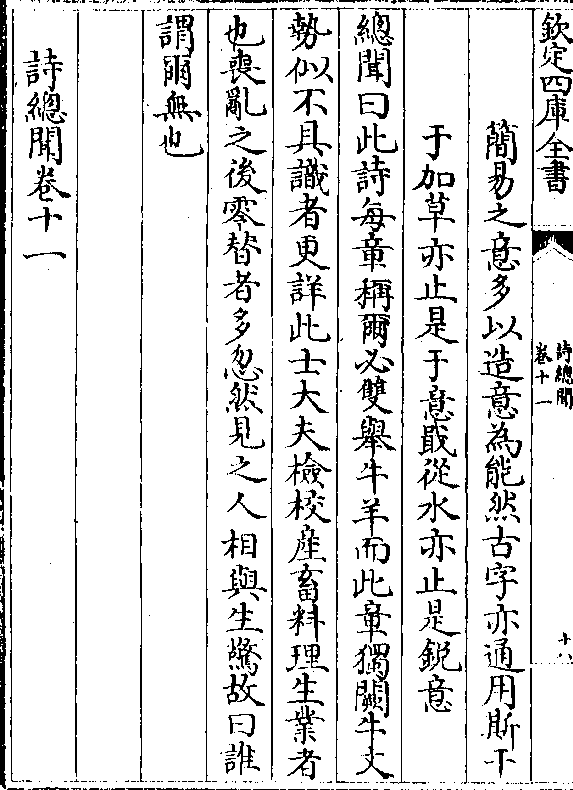 欽定四庫全書
詩總聞
卷十一
十八
簡易之意多以造意為能然古字亦通用斯干
于加草亦止是于意戢從水亦止是銳意
總聞曰此詩每章稱爾必雙舉牛羊而此章獨闕牛文
勢似不具識者更詳此士大夫檢校産畜料理生業者
也喪亂之後零替者多忽然見之人相與生驚故曰誰
謂爾無也
詩總聞卷十一